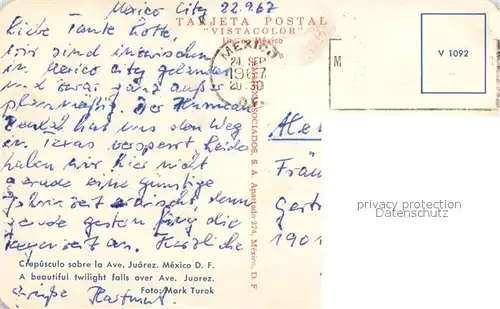 Mexico City 22.9.67
TARJETA POSTAL
"VISTACOLOR"
México
Liebe Tante Lotte,
wir sind inzwischen
in Mexico City gelandet
und zwar ganz außer
planmäßig. Der Hurrican
hat uns den Weg
in Texas versperrt. Leider
haben wir hier nicht
gerade eine günstige
erwischt, denn
gerade gestern fing die
Regenzeit an. Herzliche
Grüße Hartmut
MEXICO
24 SEP
1967
20:30
D.F.
M
V 1092
ASOCIADOS, S. A. Apartado 274, México, D. F.
Crepúsculo sobre la Ave. Juárez. México D. F.
A beautiful twilight falls over Ave. Juarez.
Foto: Mark Turok
Frän
Gert
1901
privacy protection
Datenschutz